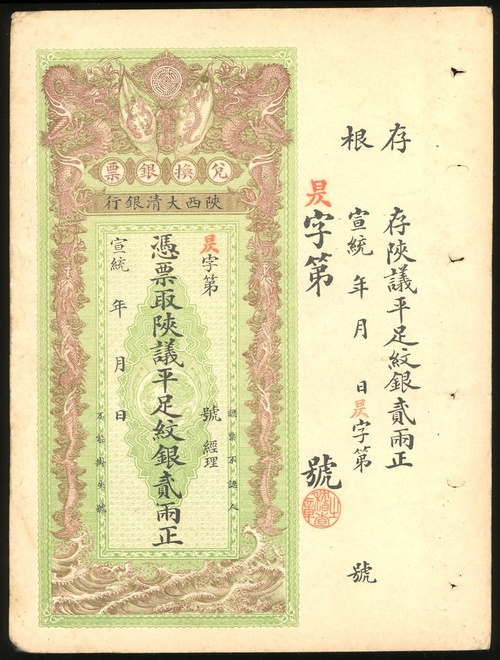 存根
存陝議平足紋銀貳兩正
宣統 年 月 日昃字第 號
昃字第 號
兌換銀票
陝西大清銀行
認票不認人
昃字第 號 經理
憑票取陝議平足紋銀貳兩正
宣統 年 月 日